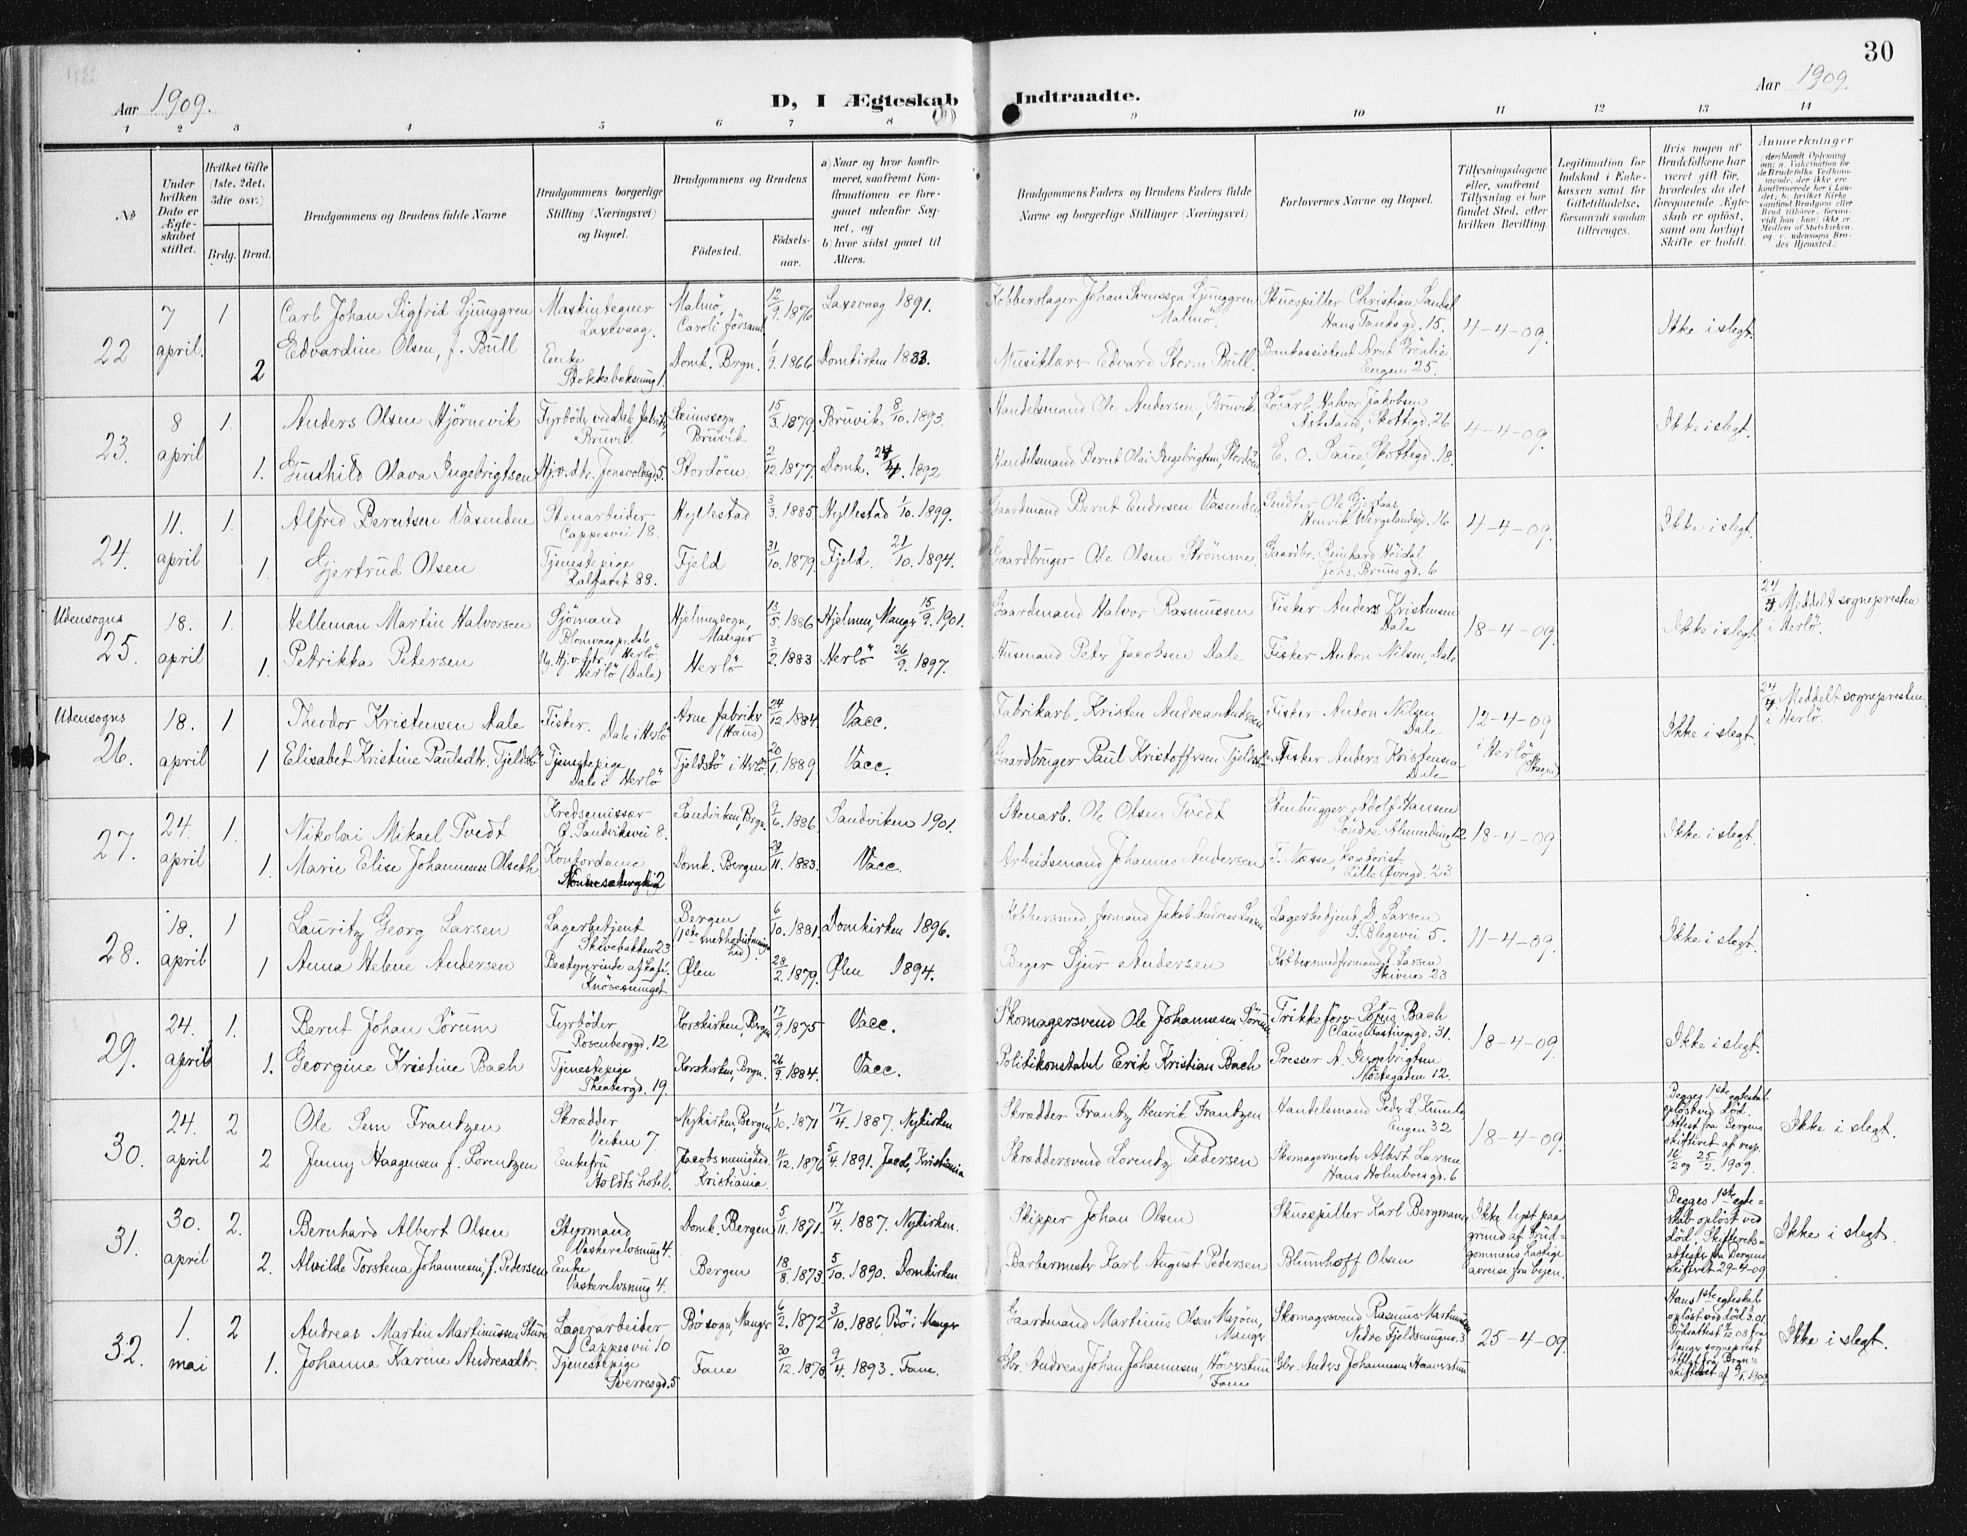 30
Aar 1909.
D, I Ægteskab Indtraadte.
Aar 1909.
1 2 3 4 5 6 7 8 9 10 11 12 13 14
№
Under hvilken Dato er Ægteskabet stiftet.
Hvilket Gifte (1ste, 2det, 3die osv.)
Brdg. Brud.
Brudgommens og Brudens fulde Navne
Brudgommens borgerlige Stilling (Næringsvei) og Bopæl.
Brudgommens og Brudens
Fødested.
Fødselsaar.
a) Naar og hvor konfirmeret, saafremt Konfirmationen er foregaaet udenfor Sognet, og
b) hvor sidst gaaet til Alters.
Brudgommens Faders og Brudens Faders fulde Navne og borgerlige Stillinger (Næringsvei)
Forlovernes Navne og Bopæl.
Tillysningsdagene eller, saafremt Tillysning ei har fundet Sted, efter hvilken Bevilling.
Legitimation for Indskud i Enkekassen samt for Giftetilladelse, forsaavidt saadan tiltrænges.
Hvis nogen af Brudefolkene har været gift før, hvorledes da det foregaaende Ægteskab er opløst, samt om lovligt Skifte er holdt.
Anmærkninger
22 7 april. 1 Carl Johan Sigfrid Ljunggren Maskintegner Laxevaag. Malmö, Caroli förs. 12/9. 1876 Laxevaag 1891. Kobberslager Johan Svensson Ljunggren Malmö. Skuespiller Christian Sandal Hans Tanksgd. 15. 4-4-09. Ikke i slegt.
2 Edvardine Olsen, f. Bull Enke Stokkebaksmug 1. Domk. Brgn. 1/9. 1866 Domkirken 1883. Musiklærer Edvard Storm Bull Bankassistent Engen 25.
23. 8 april 1 Anders Olsen Hjørnevik Fyrbøder ved Dale fabrik, Bruvik Bruvik 15/3. 1879 Bruvik 8/10. 1893. Handelsmand Ole Andersen, Bruvik Løsarb. Halvor Jakobsen Skottegd. 26 4-4-09. Ikke i slegt.
1. Gunhild Olava Ingebrigtsen Hj.v.dtr. 5. Stordöen 2/12. 1877. Domk. 24/4. 1892 Handelsmand Bernt Olai Ingebrigtsen, Stordöen E. O. Skottegd. 18.
24. 11. april 1. Alfred Berntsen Vasenden Stenarbeider Cappesvei 18. Hyllestad 3/3. 1885 Hyllestad 1/10. 1899. Gaardmand Bernt Endresen Vasenden Ole Henrik Wergelandsgd. 16 4-4-09. Ikke i slegt.
1. Gjertrud Olsen Tjenestepige Kalfaret 88. Fjeld 31/10. 1879. Fjeld. 21/10. 1894. Gaardbruger Ole Olsen Strömme Gaardbr. Reinhard Johs. Bruunsgd. 6
Udensogns 25. 18. april 1. Helleman Martin Halvorsen Sjömand Blomvaag pr. Dale Herlö Hjelmesogn, Manger 13/5. 1886 Hjelmen, Manger 15/9. 1901. Gaardmand Halvor Rasmussen Fisker Anders Kristensen Dale 18-4-09. Ikke i slegt. 24/4. Meddelt sognepresten i Herlö.
1. Petrikka Petersen Ug. Hj.v.dtr. Herlö (Dale) Herlö 3/2. 1883 Herlö 26/9. 1897. Husmand Peter Jacobsen Dale Fisker Anton Nilsen, Dale
Udensogns 26. 18. april 1 Theodor Kristensen Dale Fisker. Dale i Herlö Arne fabriker (Haus) 24/12 1884 Vacc. Fabrikarb. Kristen Andreas Andersen Fisker Anton Nilsen Dale 12-4-09 i Herlö Ikke i slegt. 24/4 Meddelt sognepresten i Herlö.
1 Elisabet Kristine Paulsdtr. Tjeldstö Tjenestepige Dale i Herlö Tjeldstö i Herlö 20/1. 1889 Vacc. Gaardbruger Paul Kristoffersen Tjeldstö Fisker Anders Kristensen Dale
27. 24. april 1. Nikolai Mikael Tvedt Kredsemissær Ø. Sandviksvei 8. Sandviken, Brgn. 9/6. 1886 Sandviken 1901. Stenarb. Ole Olsen Tvedt Stenhugger Adolf Hansen Søndre Almending 12 18-4-09 Ikke i slegt.
1. Marie Elise Johannesen Olseth Kontordame 2 Domk. Bergen 29/11. 1883. Vacc. Arbeidsmand Johannes Andersen T. Næsse, kontorist Lille Øvregd. 23
28. 18. april 1 Lauritz Georg Larsen Lagerbetjent Skivebakken 23 Bergen (1ste methodistmenighed) 6/10. 1881. Domkirken 1896. Kobbersmed, formand Jakob Andreas Larsen Lagerbetjent D. Larsen S. Blegevei 5. 11-4-09. Ikke i slegt.
1 Anna Helene Andersen Bestyrerinde af kafé. Knøsesmuget Ølen 28/2. 1879. Ølen 1894. Bager Sjur Andersen Kobbersmedformand J. Larsen Skivne 23
29. 24. april 1. Bernt Johan Sörum Fyrböder Rosenberggd. 12 Korskirken, Bergn 17/9. 1875 Vacc. Skomagersvend Ole Johannesen Sörum Trikkefører Sofus Bach 31. 18-4-09. Ikke i slegt.
1. Georgine Kristine Bach Tjenestepige Theatergd. 19. Korskirken, Brgn. 26/9. 1884. Vacc. Politikonstabel Erik Kristian Bach Presser A. Ingebrigtsen 12.
30. 24. april 2 Ole Sem Frantzen Skrædder Veiten 7 Nykirken, Bergen 1/10. 1871 17/4. 1887. Nykirken Skrædder Frantz Henrik Frantzen Handelsmand Peder L. Engen 32 18-4-09. Begges 1ste egteskab opløst ved död. Attest fra Bergens skifteret af resp. 16/2 og 25/2. 1909. Ikke i slegt.
2 Jenny Haagensen f. Lorentzen Enkefru Holdts hotel. Jacobs menighed. Kristiania. 1/12. 1876 5/4. 1891. Jacob, Kristiania Skræddersvend Lorentz Pedersen Skomagermester Albert Larsen Hans Holmboesgd. 6
31. 30. april 2. Bernhard Albert Olsen Styrmand Vaskerelvsmug 4. Domk. Bergen 5/11. 1871. 17/4. 1887. Nykirken. Skipper Johan Olsen Skuespiller Karl Bergmann Ikke lyst paa grund af brudgommens hastige avreise fra byen. Begges 1ste egteskab opløst ved död. Skifteretsattester fra Bergens skifteret 29-4-09 Ikke i slegt.
2. Alvilde Torstena Johannesen, f. Pedersen Enke Vaskerelvsmug 4. Bergen 18/8. 1873. 5/10. 1890. Domkirken Barbermester Karl August Pedersen Blumhoff Olsen
32. 1. mai 2 Andreas Martin Martinussen Sture Lagerarbeider Cappesvei 10 Bö sogn, Manger 6/2. 1872 3/10. 1886 Bö i Manger Gaardmand Martinus Olsen Manger Skomagersvend Rasmus Martinussen Nedre Fjeldsmug 3 25-4-09. Hans 1ste egteskab opløst ved död 3. 01. Dødsattest 12. 03 fra Manger sogneprest. Attest fra Brgn.s skifteret af 1909 Ikke i slegt.
1. Johanna Karine Andreasdtr. Tjenestepige Sverresgd. 5 Fane 30/12. 1878 9/4. 1893. Fane. Gbr. Andreas Johan Johannesen, Fane Gbr. Anders Johannesen